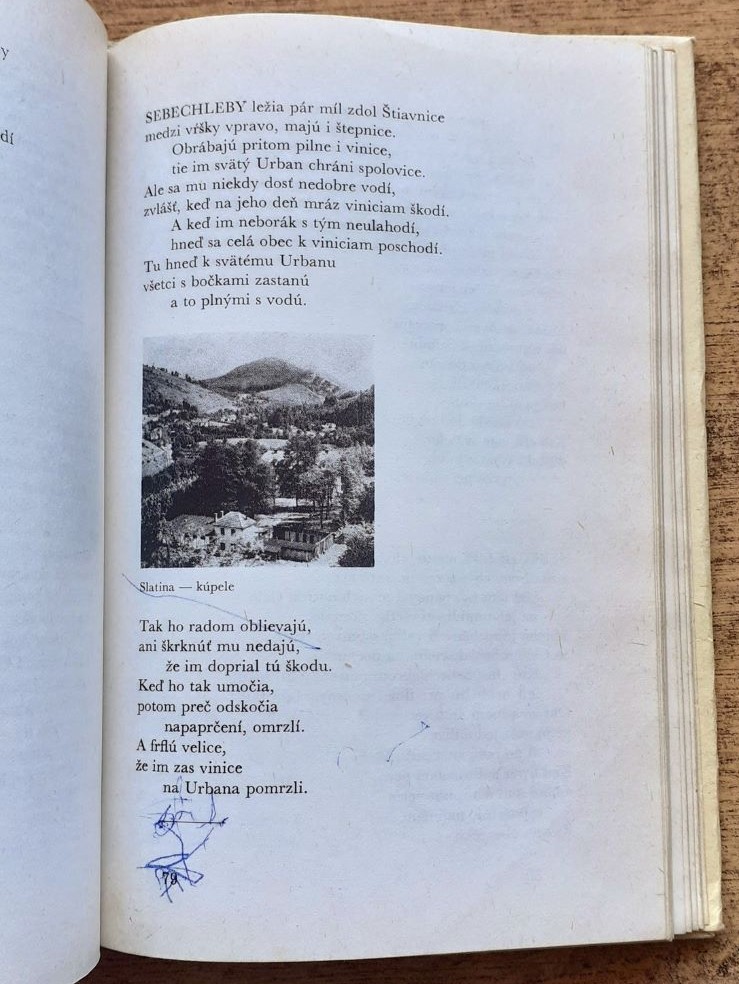 y
dí
SEBECHLEBY ležia pár míl zdol Štiavnice
medzi vŕšky vpravo, majú i štepnice.
Obrábajú pritom pilne i vinice,
tie im svätý Urban chráni spolovice.
Ale sa mu niekdy dosť nedobre vodí,
zvlášť, keď na jeho deň mráz viniciam škodí.
A keď im neborák s tým neulahodí,
hneď sa celá obec k viniciam poschodí.
Tu hneď k svätému Urbanu
všetci s bočkami zastanú
a to plnými s vodú.
Slatina — kúpele
Tak ho radom oblievajú,
ani škrknúť mu nedajú,
že im doprial tú škodu.
Keď ho tak umočia,
potom preč odskočia
napaprčení, omrzlí.
A frflú velice,
že im zas vinice
na Urbana pomrzli.
79